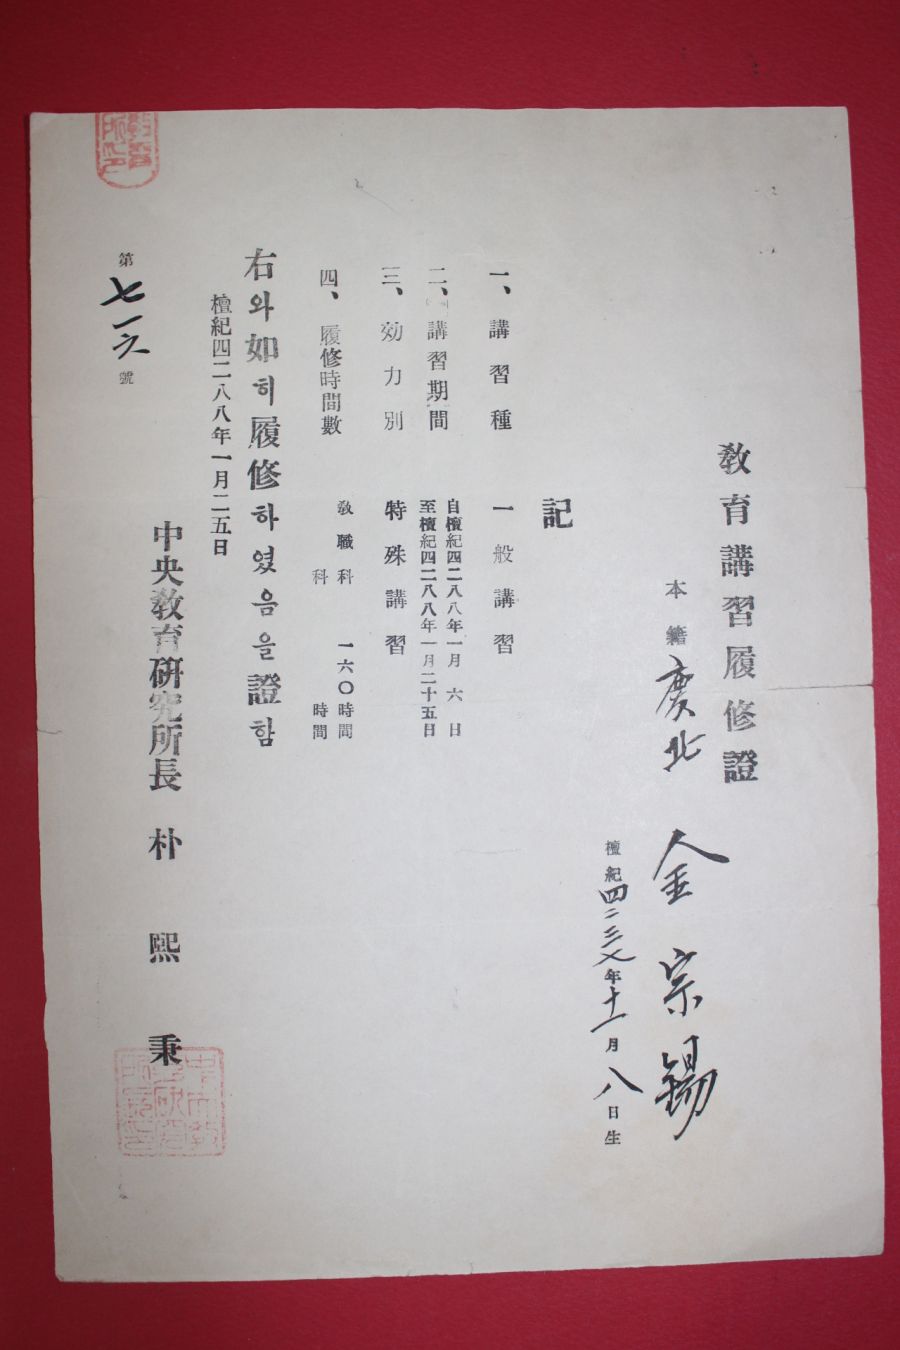 教育講習履修證
本籍 慶北
金宗錫
檀紀四二三七年十一月八日生
記
一、講習種 一般講習
二、講習期間 自檀紀四二八八年一月六日
至檀紀四二八八年一月二十五日
三、効力別 特殊講習
四、履修時間數 敎職科 一六〇時間
科 時間
右와如히履修하였음을證함
檀紀四二八八年一月二五日
中央敎育硏究所長 朴熙秉
第七一六號